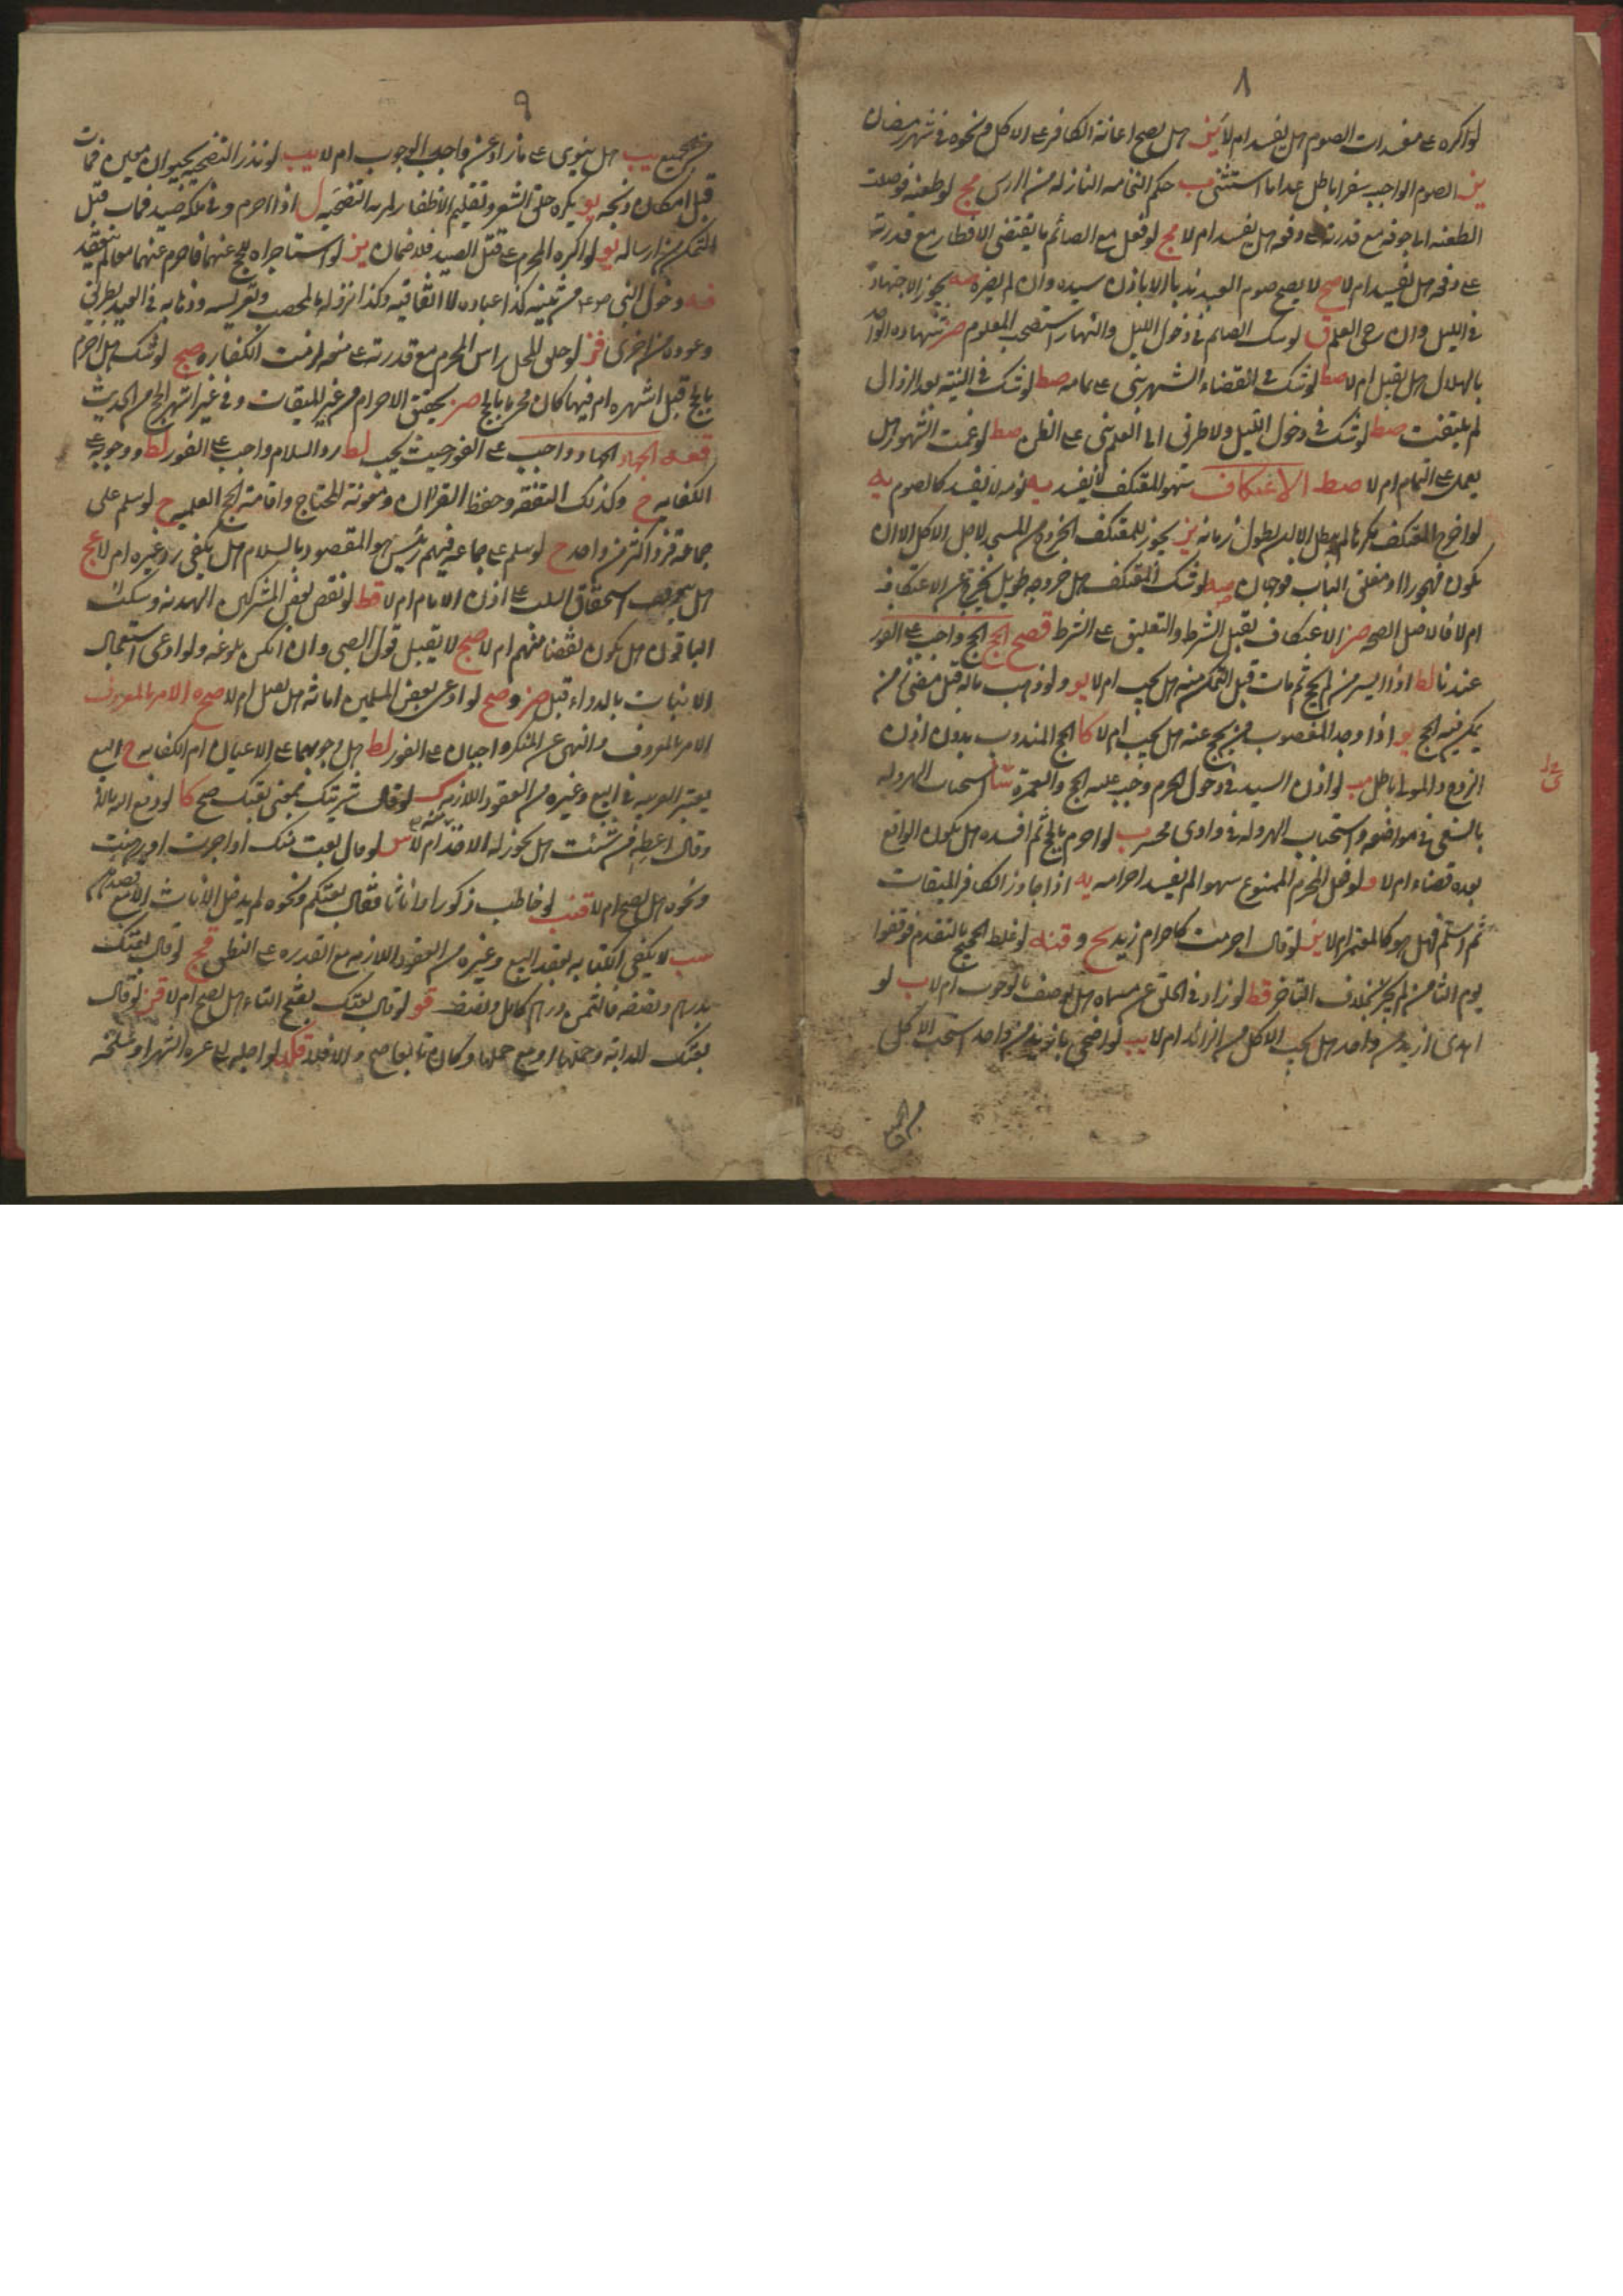 ٨
لو اكره على مفسدات الصوم هل يفسد ام لا ين هل يصح اعانة الكافر على الاكل ونحوه في شهر رمضان
ين الصوم الواجب سفرا باطل عدا ما استثنى ب حكم النخامه النازله من الراس مج لو طعنه فوصلت
الطعنه الى جوفه مع قدرته على دفعه هل يفسد ام لا مج لو فعل مع الصائم ما يقتضى الافطار مع قدرته
على دفعه هل يفسد ام لا صح لا يصح صوم العبد ندبا الا باذن سيده وان لم يضره صه يجوز الاجتهاد
في الليل وان رجى العلم ق لو شك الصائم في دخول الليل والنهار استصحب المعلوم صز شهادة الواحد
بالهلال هل يقبل ام لا صط لو شك في انقضاء الشهر بنى على تمامه صط لو شك في النية بعد الزوال
لم يلتفت صط لو شك في دخول الليل ولا طريق الى العلم بنى على الظن صط لو غمت الشهور هل
يعمل على التمام ام لا صط الاعتكاف سهو المعتكف لا يفسد يه نومه لا يفسد كالصوم يه
لو اخرج المعتكف مكرها لم يبطل الا ان يطول زمانه ين يجوز للمعتكف الخروج من المسجد لاجل الاكل الا ان
يكون مهجورا او مغلق الباب فوجهان صه لو شك المعتكف هل خروجه طويل يخرج عن الاعتكاف
ام لا فالاصل الصحه صز الاعتكاف يقبل الشرط والتعليق على الشرط قصح الحج الحج واجب على الفور
عندنا لط اذا ايسر من لم يحج ثم مات قبل التمكن منه هل يجب ام لا يو ولو ذهب ماله قبل مضى زمن
يمكن فيه الحج يو اذا وجد المغصوب من يحج عنه هل يجب ام لا كا الحج المندوب بدون اذن
الزوج والمولى باطل مب لو اذن السيد في دخول الحرم وجب عليه الحج والعمرة شا استحباب الهروله
بالسعى في مواضعه واستحباب الهروله في وادى محسر ب لو احرم بالحج ثم افسده هل يكون الواقع
بعده قضاء ام لا و لو فعل المحرم الممنوع سهوا لم يفسد احرامه يه اذا جاوز الكافر الميقات
ثم اسلم فهل هو كالمعتمر ام لا ين لو قال احرمت كاحرام زيد يح و قنه لو غلط الحجيج بالتقدم فوقفوا
يوم الثامن لم يجز بخلاف التاخر قط لو زاد في الحلق عن مسماه هل يوصف بالوجوب ام لا ب لو
اهدى ازيد من واحد هل يجب الاكل من الزائد ام لا يب لو اضحى بازيد من واحد استحب الاكل
من الجميع
٩
من الجميع يب هل ينوى على ما زاد عن واجب الوجوب ام لا يب لو نذر التضحيه بحيوان معين فمات
قبل امكان ذبحه يو يكره حلق الشعر وتقليم الاظفار لمريد التضحيه ل اذا احرم وفي ملكه صيد فمات قبل
التمكن من ارساله يو لو اكره المحرم على قتل الصيد فلا ضمان ين لو استاجراه ليحج عنهما فاحرم عنهما معا لم ينعقد
دخول النبي من ثنيه كدا عباده لا اتفاقيه وكذا نزوله بالمحصب وتعريسه وذهابه في العيد بطريق
وعوده من اخرى قز لو حلق المحل راس المحرم مع قدرته على منعه لزمت الكفاره صح لو شك هل احرم
بالحج قبل اشهره ام فيها كان محرما بالحج صز يحقق الاحرام من غير الميقات وفي غير اشهر الحج من الحديث
قعه الجهاد الجهاد واجب على الفور حيث يجب لط رد السلام واجب على الفور لط ووجوبه على
الكفايه ح وكذلك التفقه وحفظ القران ومعونه المحتاج واقامة الحج العلميه ح لو سلم على
جماعة فرد اكثر من واحد ح لو سلم على جماعه فيهم رئيس هو المقصود بالسلام هل يكفى رد غيره ام لا عج
هل يتوقف استحقاق السلب على اذن الامام ام لا قط لو نقض بعض المشركين الهدنه وسكت
الباقون هل يكون نقضا منهم ام لا صح لا يقبل قول الصبى وان امكن بلوغه ولو ادعى استعمال
الانبات بالدواء قبل صز و صح لو ادعى بعض المسلمين امانه هل يقبل ام لا صح الامر بالمعروف
الامر بالمعروف والنهى عن المنكر واجبان على الفور لط هل وجوبهما على الاعيان ام الكفايه ح البيع
يعتبر العربيه في البيع وغيره من العقود اللازمه ك لو قال شريتك بمعنى بعتك صح كا لو دفع اليه مالا
وقال اعطه من شئت هل يجوز له الاخذ منه ام لا س لو قال بعت منك او اجرت او رهنت
ونحوه هل يصح ام لا قنب لو خاطب ذكورا واناثا فقال بعتكم ونحوه لم يدخل الاناث الا مع قصدهم
لا يكفى الكتابه لعقد البيع وغيره من العقود اللازمه مع القدره على النطق قح لو قال بعتك
بدرهم ونصفه فالثمن درهم كامل ونصف قو لو قال بعتك بفتح التاء هل يصح ام لا قز لو قال
بعتك الدابه وحملها او مع حملها وكان تابعا صح والا فلا قكد لو اجله الى غره الشهر او سلخه